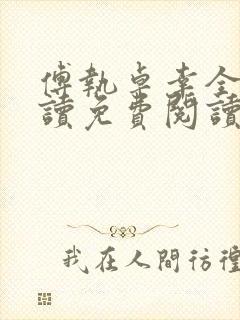 傅執卓李全
讀免費閱讀
我在人間彷徨